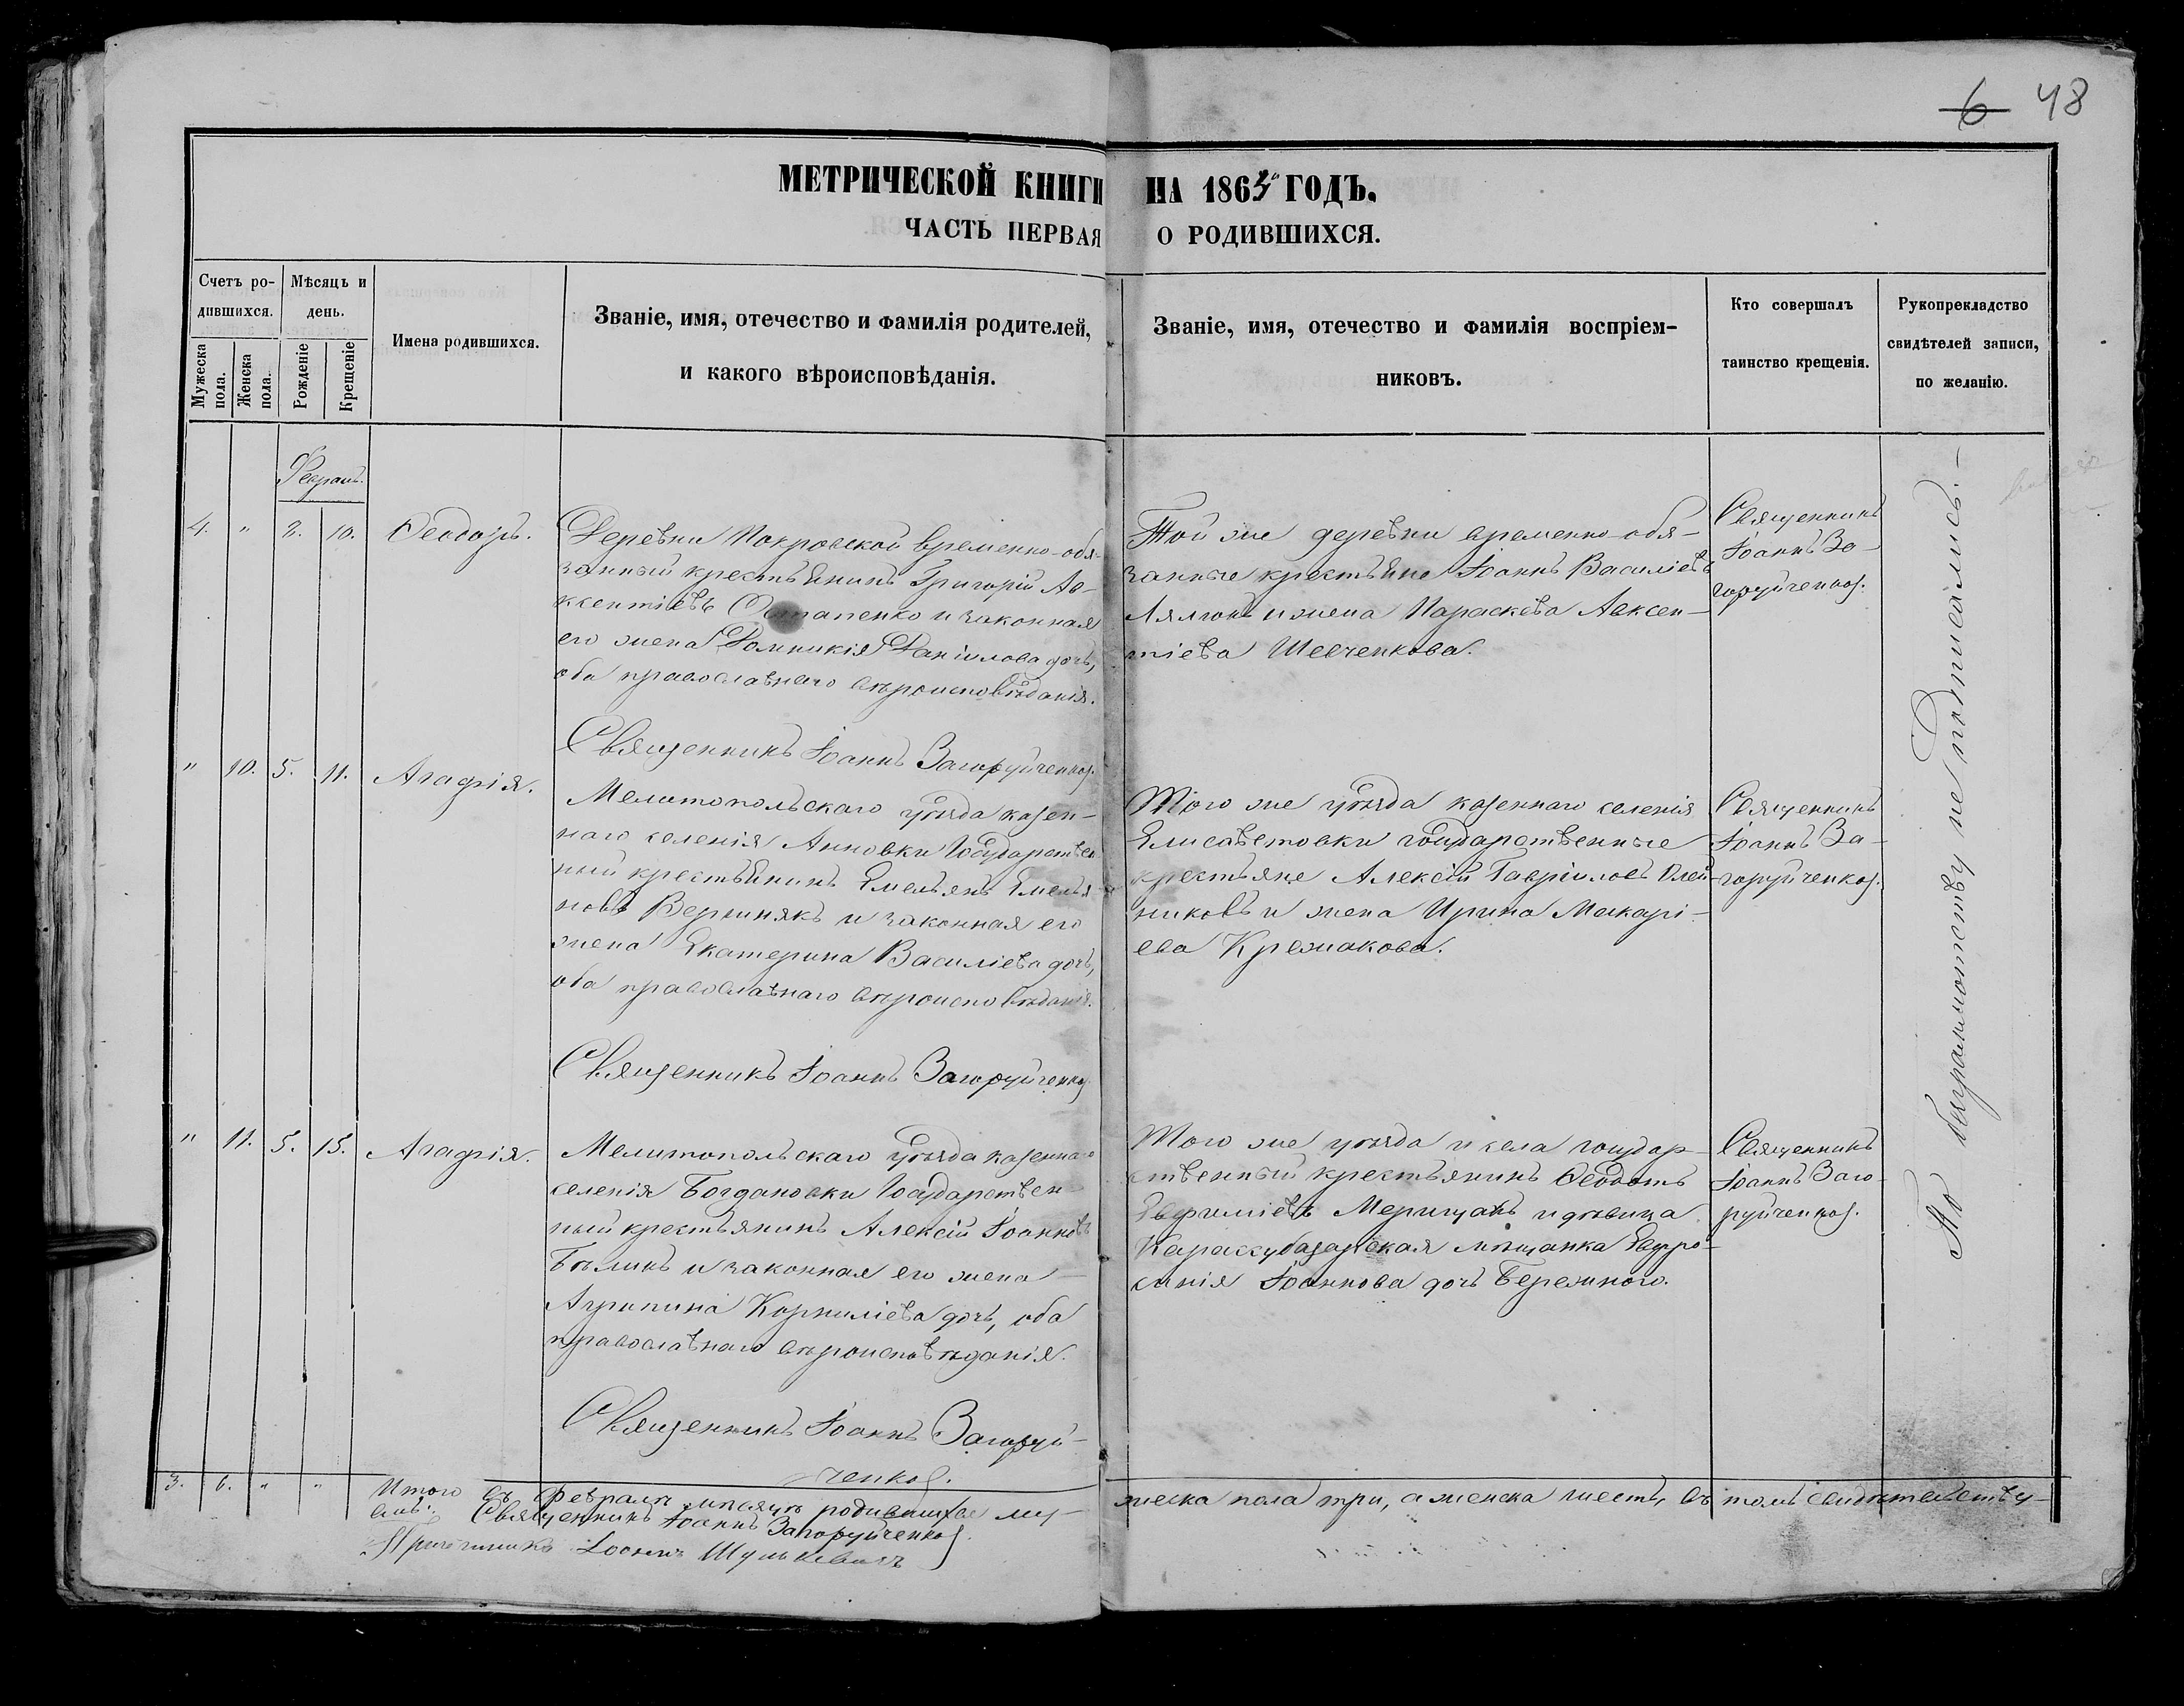 6 48
МЕТРИЧЕСКОЙ КНИГИ НА 1863 ГОДЪ.
ЧАСТЬ ПЕРВАЯ О РОДИВШИХСЯ.
Счетъ ро-
дившихся.
Мужеска пола.
Женска пола.
Мѣсяцъ и
день.
Рожденіе
Крещеніе
Имена родившихся.
Званіе, имя, отечество и фамилія родителей,
и какого вѣроисповѣданія.
Званіе, имя, отечество и фамилія воспріем-
никовъ.
Кто совершалъ
таинство крещенія.
Рукоприкладство
свидѣтелей записи,
по желанію.
4. " 2. 10. Ѳеодоръ.
Деревни Покровской временно-обя-
занный крестьянинъ Григорій Ав-
ксентіевъ Остапенко и законная
его жена Домникія Даніилова дочь,
оба православнаго вѣроисповѣданія.
Священникъ Іоаннъ Загоруйченко.
Той же деревни временно-обя-
занные крестьяне Іоаннъ Василіевъ
и жена Параскева Авксен-
тіева Шевченкова.
Священникъ
Іоаннъ За-
горуйченко.
" 10. 5. 11. Агафія.
Мелитопольскаго уѣзда казен-
наго селенія Анновки Государствен
ный крестьянинъ Емельянъ Емелья-
новъ Вершнякъ и законная его
жена Екатерина Василіева дочь,
оба православнаго вѣроисповѣданія.
Священникъ Іоаннъ Загоруйченко.
Того же уѣзда казеннаго селенія
Елисаветовки государственные
крестьяне Алексій Гавріиловъ Олей-
никовъ и жена Ирина Макарі-
ева
Священникъ
Іоаннъ За-
горуйченко.
" 11. 5. 15. Агафія.
Мелитопольскаго уѣзда казеннаго
селенія Богдановки Государствен-
ный крестьянинъ Алексій Іоанновъ
Бѣликъ и законная его жена
Агрипина Корниліева дочь, оба
православнаго вѣроисповѣданія.
Священникъ Іоаннъ Загоруй-
ченко.
Того же уѣзда и села государ-
ственный крестьянинъ Ѳеодотъ
Евфиміевъ и дѣвица
Карассубазарская мѣщанка Евфро-
синія Іоаннова дочь Бережного.
Священникъ
Іоаннъ Заго-
руйченко.
По безграмотству не подписались.—
3. 6. " " Итого въ Февралѣ мѣсяцѣ родившихся му-
жеска пола три, а женска шесть, въ томъ свидѣтельству-
емъ: Священникъ Іоаннъ Загоруйченко.
Іоаннъ